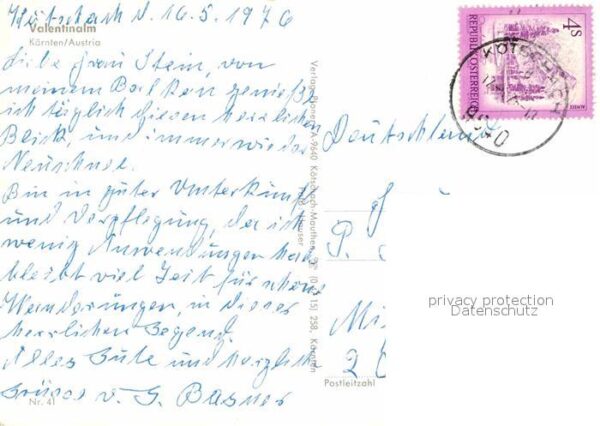 Kötschach d. 16.5.1976
Valentinalm
Kärnten/Austria
Liebe Frau Stein, von
meinem Balkon genieße
ich täglich diesen herrlichen
Blick, und immer wieder
Neuschnee.
Bin in guter Unterkunft
und Verpflegung, da ich
wenig Anwendungen habe
bleibt viel Zeit für schöne
Wanderungen, in dieser
herrlichen Gegend.
Alles Gute und herzliche
Grüsse v. G. Basner
Nr. 41
A-9640 Kötschach-Mauthen
(0 47 15) 258, Kärnten
4s
REPUBLIK ÖSTERREICH
KÖTSCHACH
9640
Deutschland
P.
Mi
2
Postleitzahl
privacy protection
Datenschutz